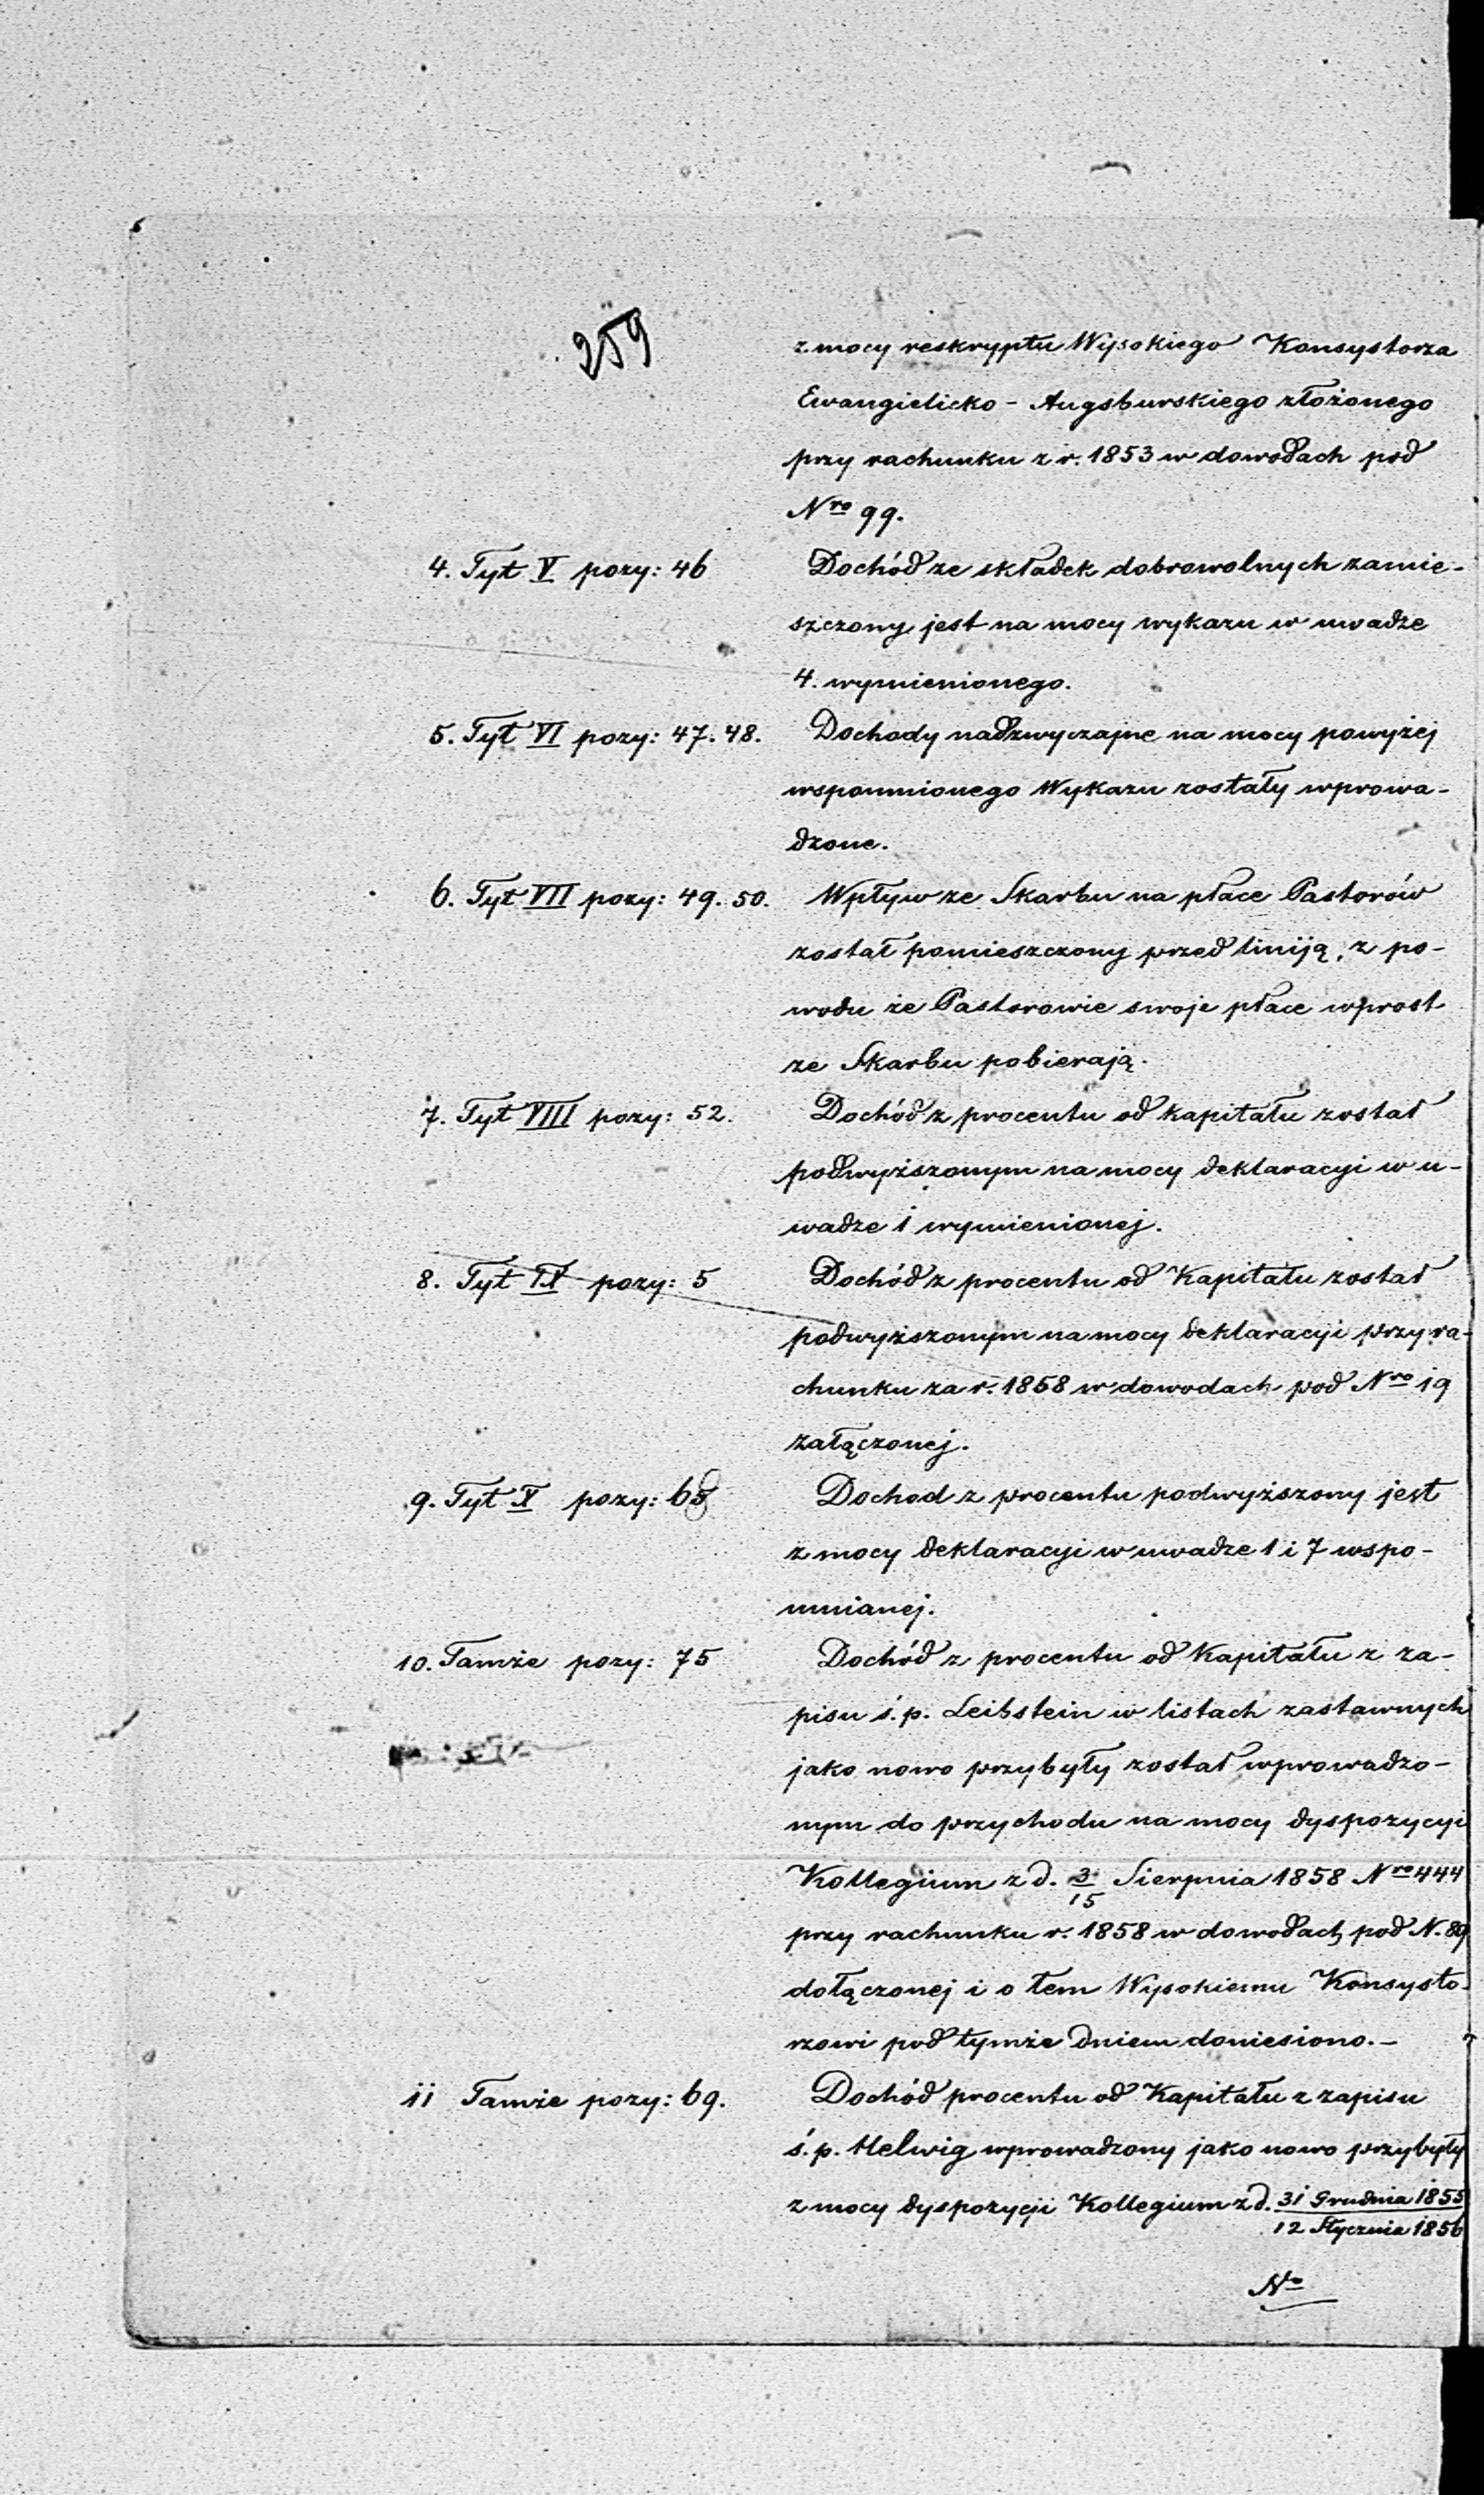 259
z mocy reskryptu Wysokiego Konsystorza
Ewangielicko - Augsburskiego złożonego
przy rachunku z r. 1853 w dowodach pod
Nro 99.
4. Tyt V pozy: 46 Dochód ze składek dobrowolnych zamie-
szczony jest na mocy wykazu w uwadze
4. wymienionego.
5. Tyt VI pozy: 47. 48. Dochody nadzwyczajne na mocy powyżej
wspomnionego Wykazu zostały wprowa-
dzone.
6. Tyt VII pozy: 49. 50. Wpływ ze Skarbu na płace Pastorów
został pomieszczony przed liniją, z po-
wodu że Pastorowie swoje płace wprost
ze Skarbu pobierają.
7. Tyt VIII pozy: 52. Dochód z procentu od kapitału został
podwyższonym na mocy deklaracyi w u-
wadze 1 wymienionej.
8. Tyt IX pozy: 5 Dochód z procentu od Kapitału został
podwyższonym na mocy deklaracyi przy ra-
chunku za r. 1858 w dowodach pod Nro 19
załączonej.
9. Tyt X pozy: Dochod z procentu podwyższony jest
z mocy deklaracyi w uwadze 1 i 7 wspo-
mnianej.
10. Tamże pozy: 75 Dochód z procentu od Kapitału z za-
pisu ś.p. Leibstein w listach zastawnych
jako nowo przybyły został wprowadzo-
nym do przychodu na mocy dyspozycyi
Kollegium z d. 3/15 Sierpnia 1858 Nro 444
przy rachunku r. 1858 w dowodach pod N. 89
dołączonej i o tem Wysokiemu Konsysto-
rzowi pod tymże dniem doniesiono. -
11 Tamże pozy: 69. Dochód procentu od Kapitału z zapisu
ś.p. Helwig wprowadzony jako nowo przybyły
z mocy dyspozycji Kollegium z d. 31 Grudnia 1855
12 Stycznia 1856
No